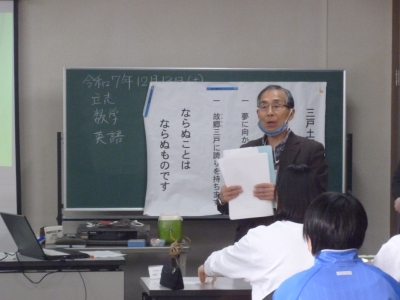 令和7年12月13日(土)
立志
数学
英語
三戸土
一 夢に向か
一 故郷三戸に誇りを持ち
ならぬことは
ならぬものです